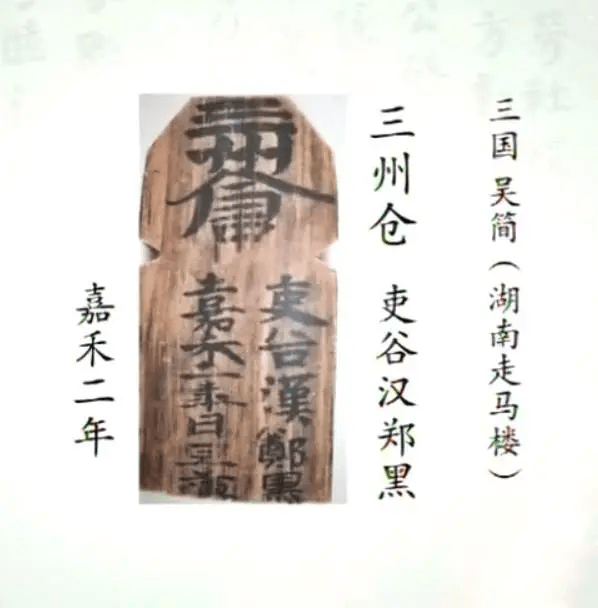 三国 吴简（湖南走马楼）
三州仓 吏谷汉郑黑
三州倉
吏谷漢鄭黑
嘉禾二年
嘉禾二年